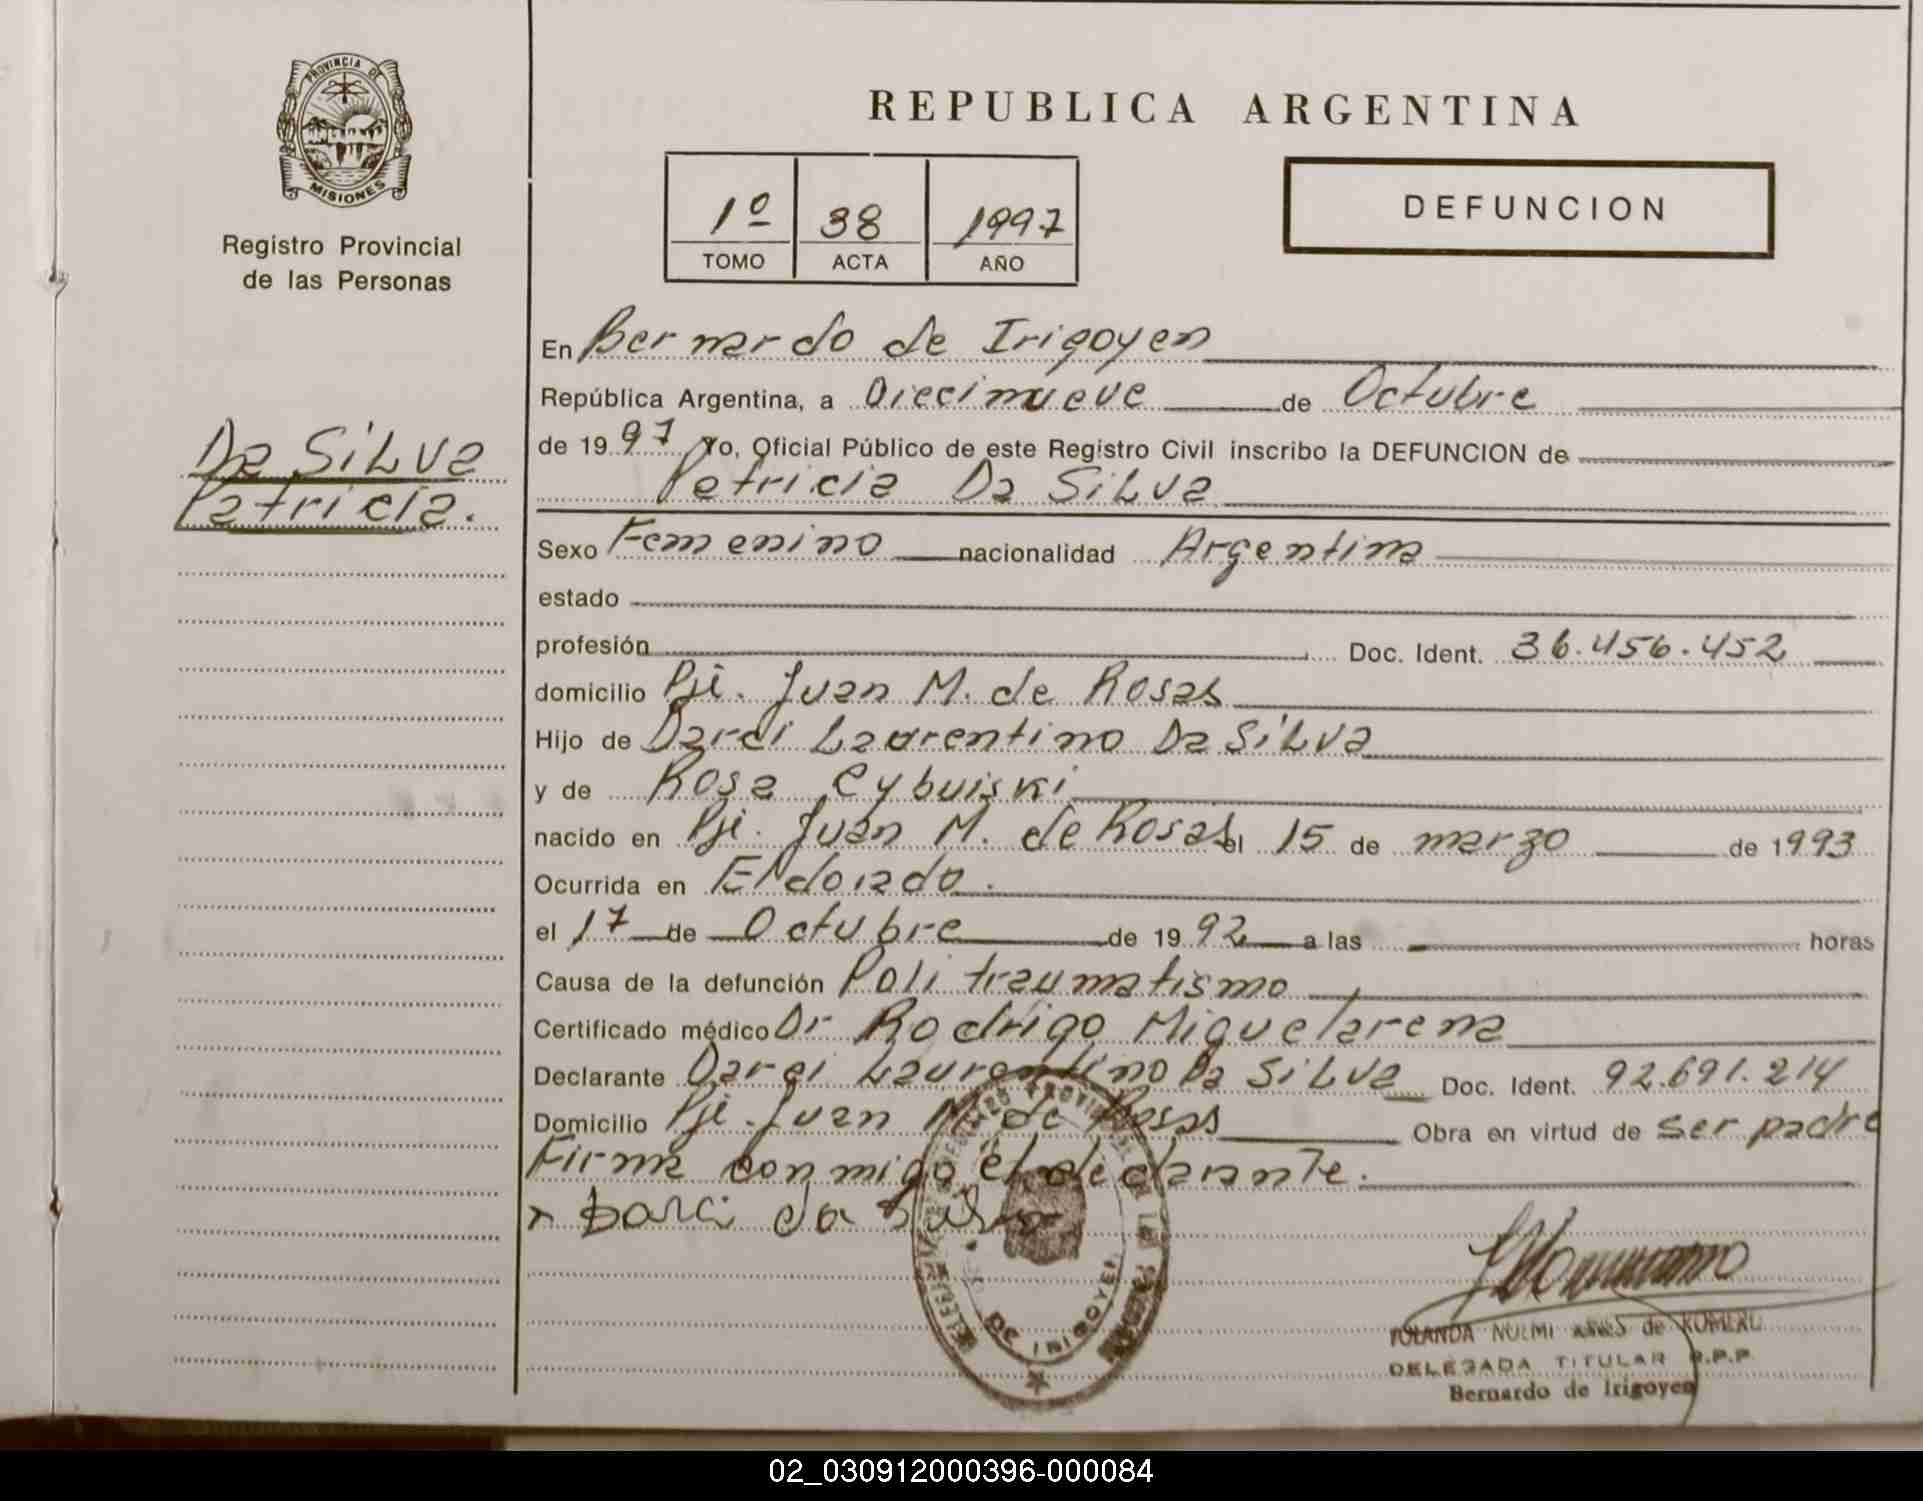 PROVINCIA DE
MISIONES
Registro Provincial
de las Personas
Da SiLva
Patricia.
REPUBLICA ARGENTINA
1º 38 1997
TOMO ACTA AÑO
DEFUNCION
En Bernardo de Irigoyen
República Argentina, a Diecinueve de Octubre
de 1997 Yo, Oficial Público de este Registro Civil inscribo la DEFUNCION de
Patricia Da SiLva
Sexo Femenino nacionalidad Argentina
estado
profesión Doc. Ident. 36.456.452
domicilio Pje. Juan M. de Rosas
Hijo de Darci Laurentino Da SiLva
y de Rosa Cybuiski
nacido en Pje. Juan M. de Rosas el 15 de marzo de 1993
Ocurrida en Eldorado.
el 17 de Octubre de 1992 a las horas
Causa de la defunción Politraumatismo
Certificado médico Dr Rodrigo Miguelarena
Declarante Darci Laurentino Da SiLva Doc. Ident. 92.691.214
Domicilio Pje. Juan M. de Rosas Obra en virtud de ser padre
Firma conmigo el declarante.
x Darci da Silva
DE IRIGOYEN
YOLANDA NOEMI de ROMERO
DELEGADA TITULAR R.P.P.
Bernardo de Irigoyen
02_030912000396-000084